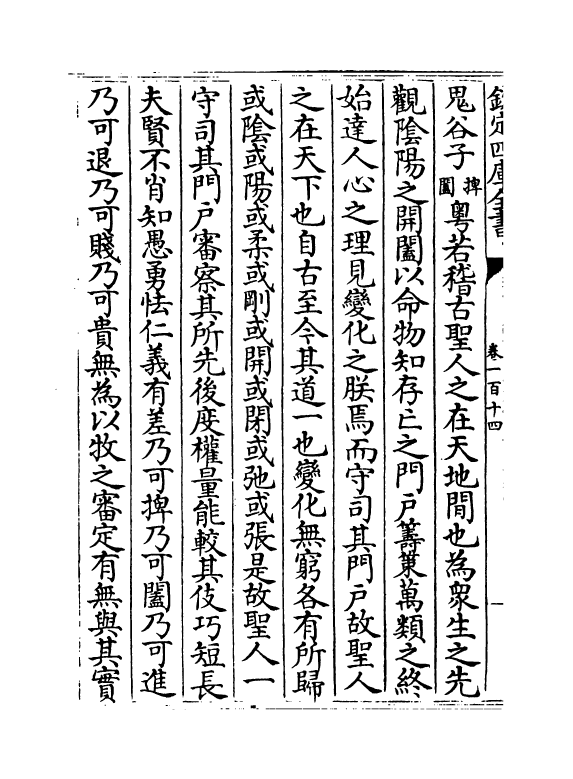 欽定四庫全書
卷一百十四
一
鬼谷子捭闔粤若稽古聖人之在天地間也為衆生之先
觀陰陽之開闔以命物知存亡之門户籌策萬類之終
始達人心之理見變化之朕焉而守司其門户故聖人
之在天下也自古至今其道一也變化無窮各有所歸
或陰或陽或柔或剛或開或閉或弛或張是故聖人一
守司其門户審察其所先後度權量能較其伎巧短長
夫賢不肖知愚勇怯仁義有差乃可捭乃可闔乃可進
乃可退乃可賤乃可貴無為以牧之審定有無與其實